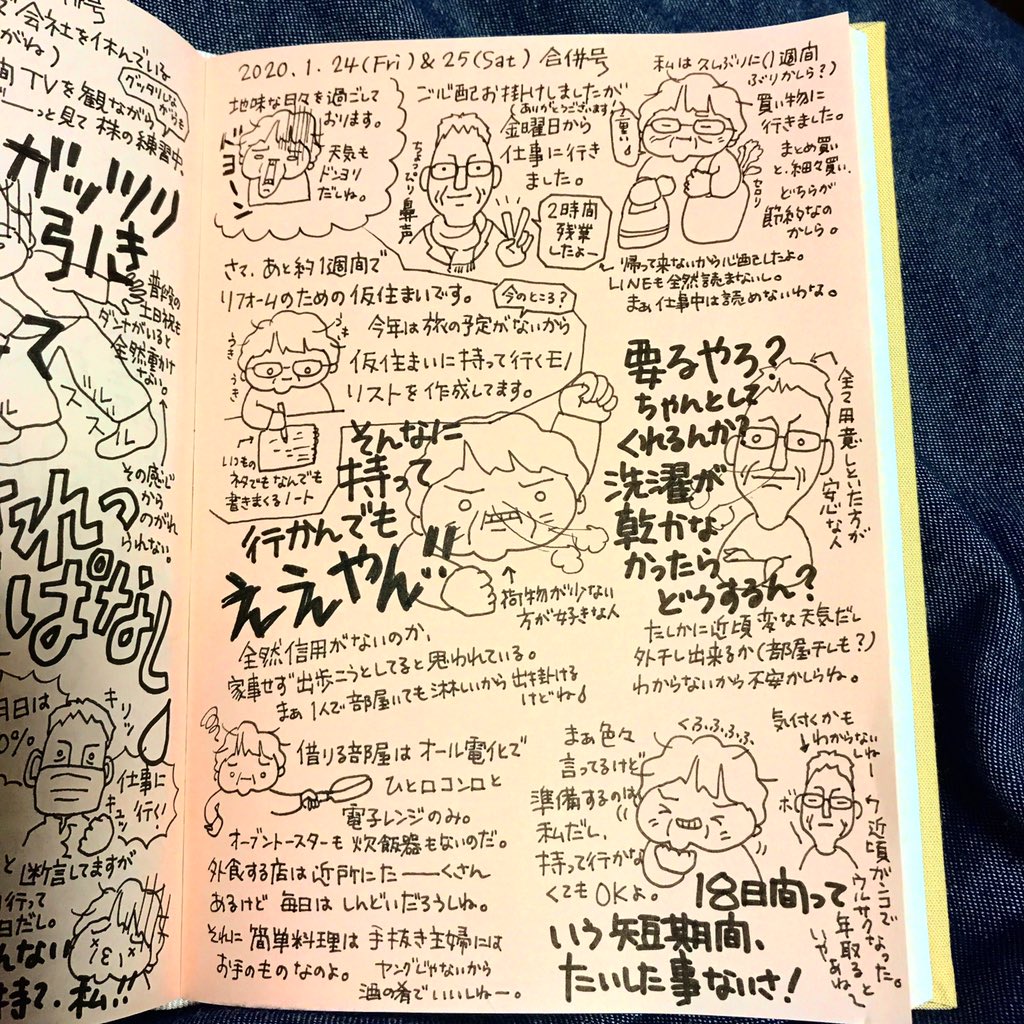 号
で会社を休んでいる
がね)
間TVを観ながら
グッタリしながらも
ーーっと見て株の練習中、
ガッツリ
引き
普段の
土日祝も
ダンナがいると
全然動かけ
ない。
ズル
ズル
その感心
から
のがれ
られない。
ぱなし
月日は
0%
キリッ
仕事に
行く!
キュッ
と断言してますが
行って
日だし。
んない
待て、私!!
2020.1.24(Fri)&25(Sat) 合併号
地味な日々を過ごして
おります。
ドヨーン
天気も
ドンヨリ
だしね。
ご心配お掛けしましたが
(ありがとうございます!)
金曜日から
仕事に行き
ました。
ちょっぴり鼻声
2時間
残業
したよー
私は久しぶりに(1週間
ぶりかしら?)
買い物に
行きました。
重い
セロリ
まとめ買い
と、細々買い、
どちらが
節約なの
かしら。
帰って来ないから心配したよ。
LINEも全然読まないし。
まあ仕事中は読めないわな。
さて、あと約1週間で
リフォームのための仮住まいです。
今のところ?
今年は旅の予定がないから
仮住まいに持って行くモノ
リストを作成してます。
うき
うき
いつもの
ネタでもなんでも
書きまくるノート
そんなに
持って
行かんでも
ええやん!!
荷物が少ない
方が好きな人
要るやろ?
ちゃんとして
くれるんか?
洗濯が
乾かな
かったら
どうするん?
全て用意しといた方が
安心な人
全然信用がないのか、
家事せず出歩こうとしてると思われている。
まぁ1人で部屋いても淋しいから出掛ける
けどね
たしかに近頃変な天気だし
外干し出来るか(部屋干しも?)
わからないから不安かしらね。
借りる部屋はオール電化で
ひと口コンロと
電子レンジのみ。
オーブントースターも炊飯器もないのだ。
外食する店は近所にた――くさん
あるけど毎日はしんどいだろうしね。
それに簡単料理は手抜き主婦には
お手のものなのよ。
ヤングじゃないから
酒の肴でいいしねー。
まぁ色々
言ってるけど
準備するのは
私だし、
持って行かな
くてもOKよ。
くふふふふ
気付くかも
わからない
しねー
ボー
近頃ガンコで
ウルサクなった。
年取ると
いやあね〜
18日間って
いう短期間、
たいした事ないさ!